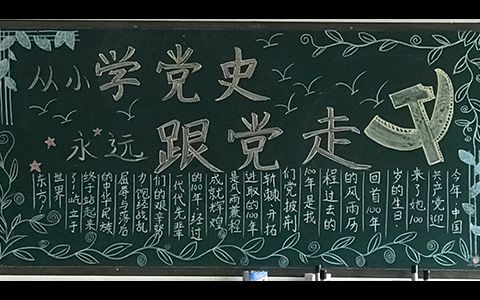 从小学党史
永远跟党走
今年,中国
共产党迎
来了她100
岁的生日.
回首100年
的风雨历
程过去的
100年是我
们党披荆
斩棘开拓
进取的100年
是风雨兼程
成就辉煌
的100年,经过
一代代先辈
们的艰辛努
力,饱经战乱
屈辱与落后
的中华民族
终于站起来
了!屹立于
世界
东方!